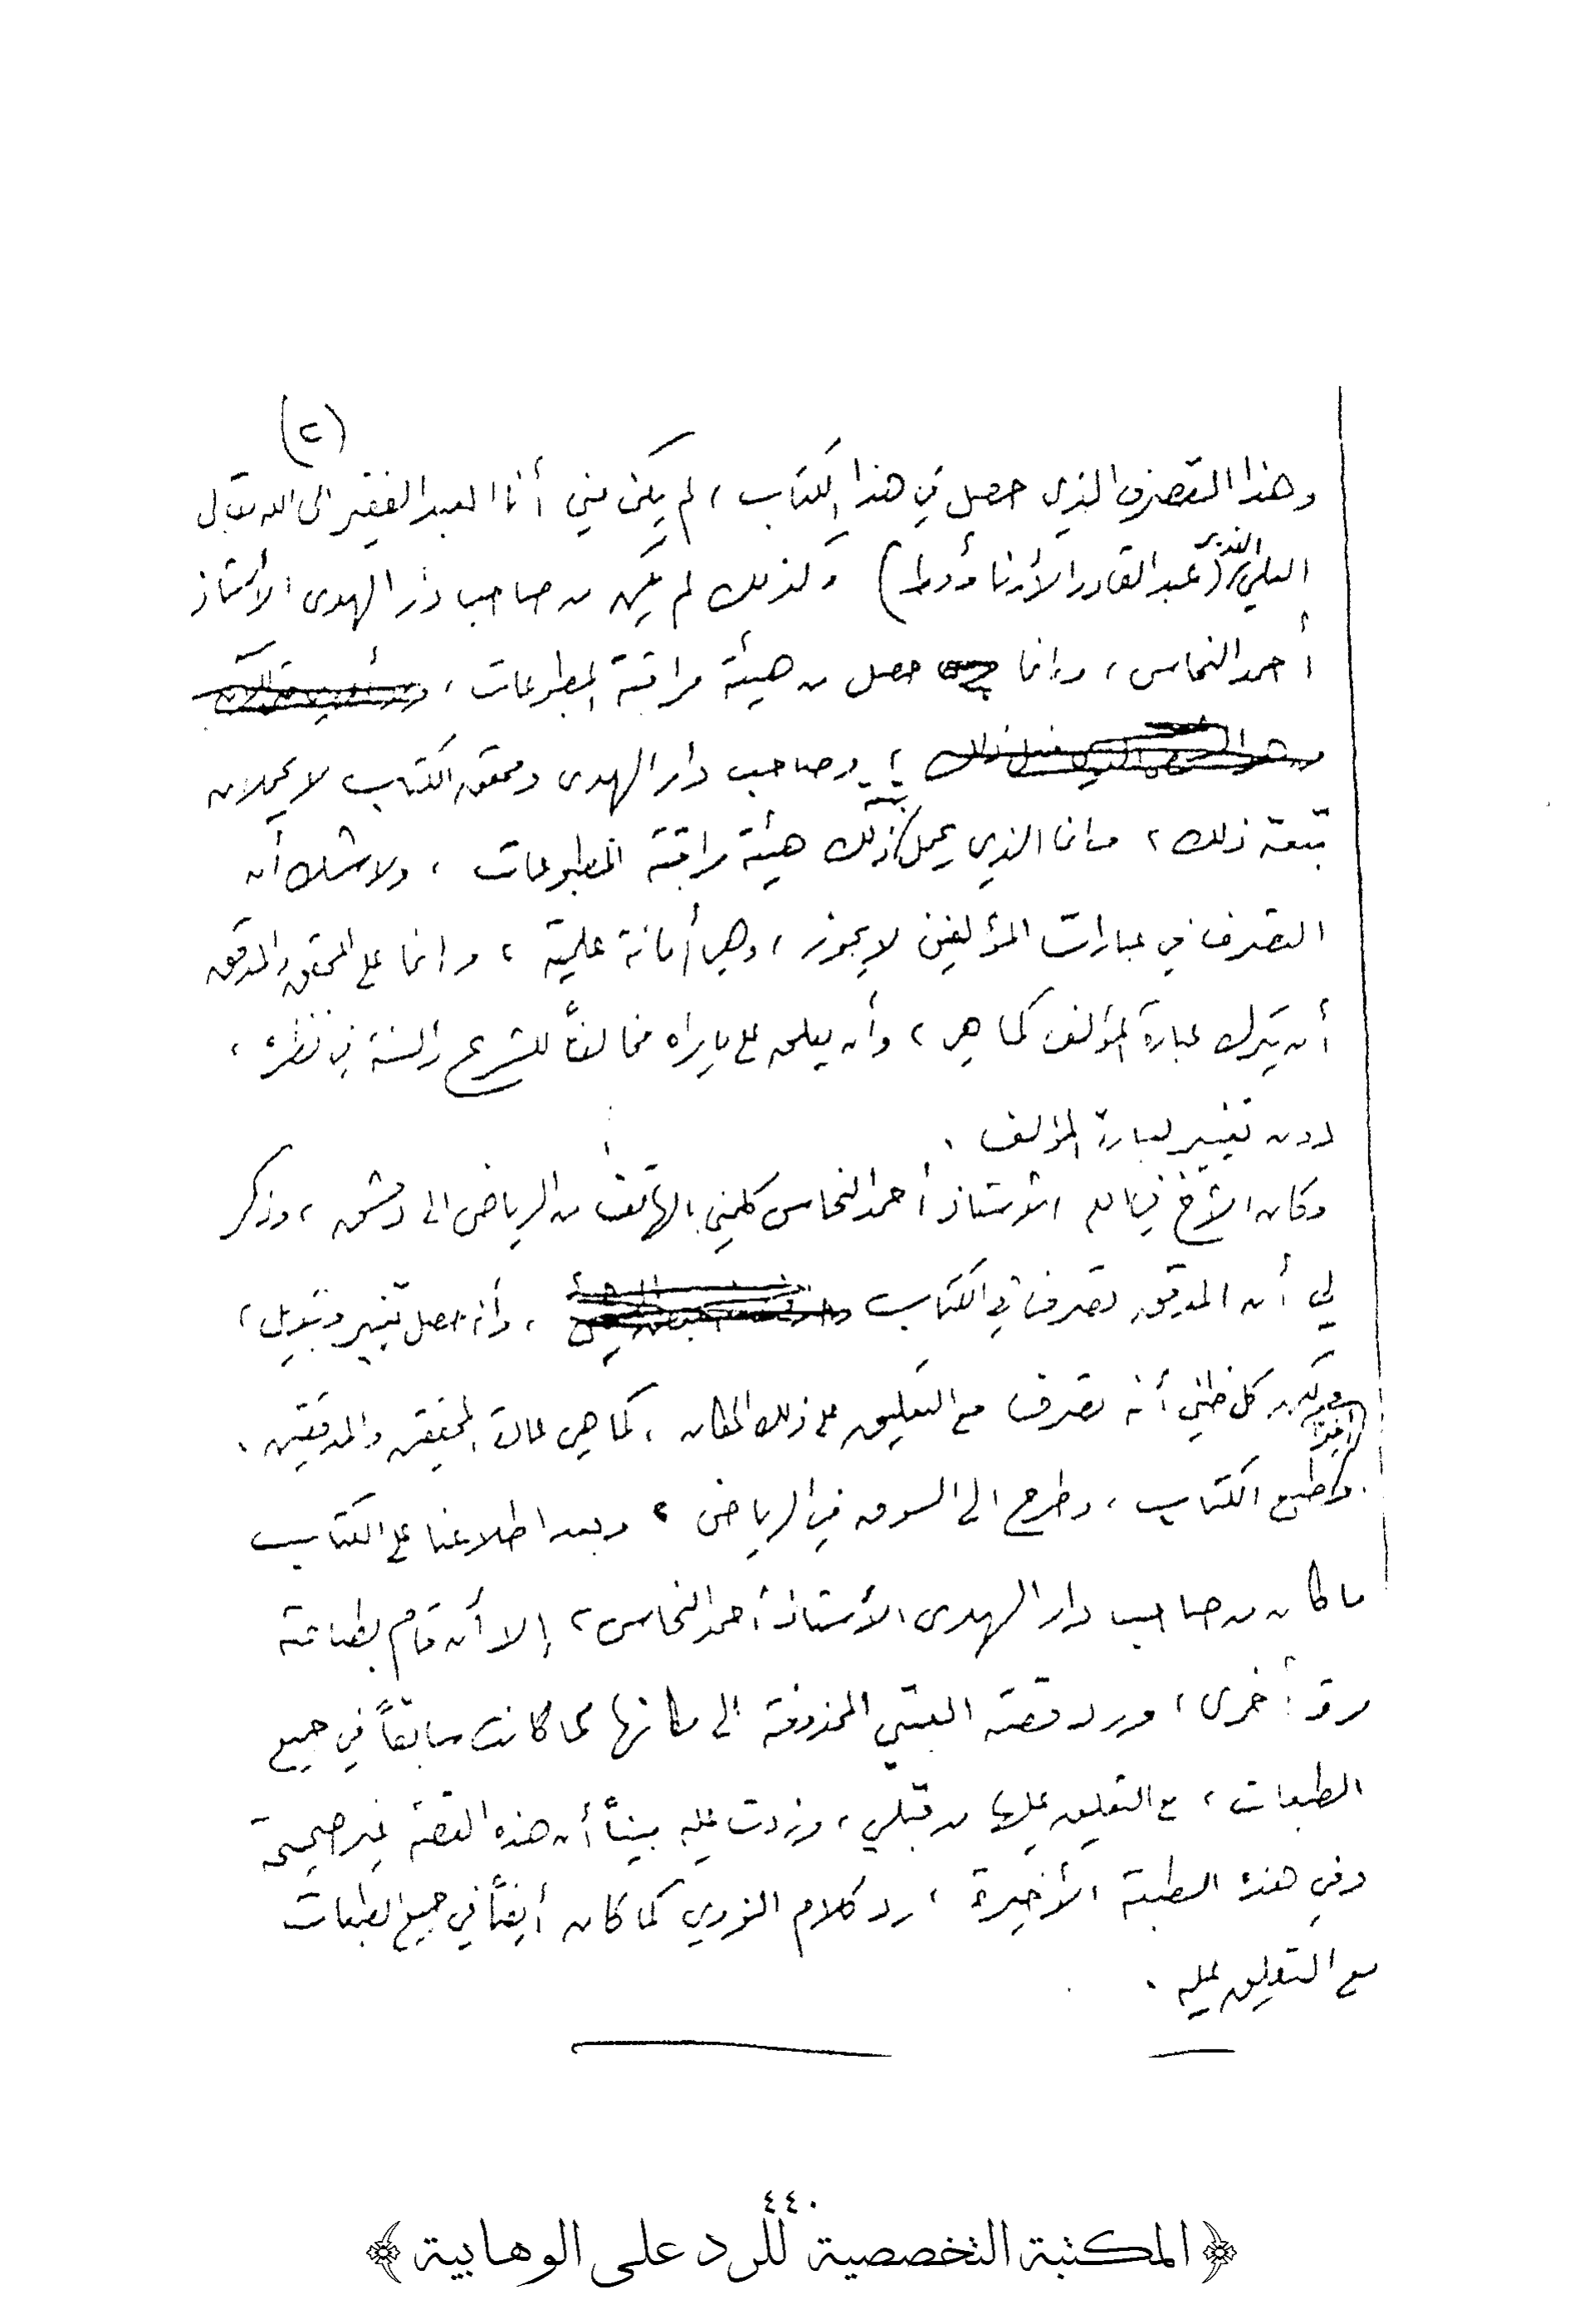 (٢)
وهذا التصرف الذي حصل في هذا الكتاب ، لم يكن مني أنا العبد الفقير الى الله تعالى
العلي القدير (عبد القادر الأرناؤوط) وكذلك لم يكن من صاحب دار الهدى الأستاذ
أحمد النحاس ، وانما حصل من هيئة مراقبة المطبوعات ،
، وصاحب دار الهدى ومحقق الكتاب لا يحملان
تبعة ذلك ، وانما الذي يحمل تبعة ذلك هيئة مراقبة المطبوعات ، ولا شك أن
التصرف في عبارات المؤلفين لا يجوز ، وهي أمانة علمية ، وانما على المحقق والمدقق
أن يترك عبارة المؤلف كما هي ، وأن يعلق على ما يراه مخالفاً للشرع والسنة في نظره ،
دون تغيير لعبارة المؤلف .
وكان الأخ في الله الأستاذ أحمد النحاس كلمني بالهاتف من الرياض الى دمشق ، وذكر
لي أن المدقق تصرف في الكتاب ، وأنه حصل تغيير وتبديل ،
ولكن كل ظني أنه تصرف مع التعليق على ذلك المكان ، كما هي عادة المحققين والمدققين .
وأخيراً طبع الكتاب ، وطرح الى السوق في الرياض ، وبعد اطلاعنا على الكتاب
ما كان من صاحب دار الهدى الأستاذ أحمد النحاس ، إلا أن قام بطباعته
مرة أخرى ، ورد قصة العتبي المحذوفة الى مكانها كما كانت سابقاً في جميع
الطبعات ، مع التعليق عليها من قبلي ، وزدت عليه مبيناً أن هذه القصة غير صحيحة
وفي هذه الطبعة الأخيرة ، رد كلام النووي كما كان أيضاً في جميع الطبعات
مع التعليق عليه .
٤٤٠
﴿ المكتبة التخصصية للرد على الوهابية ﴾